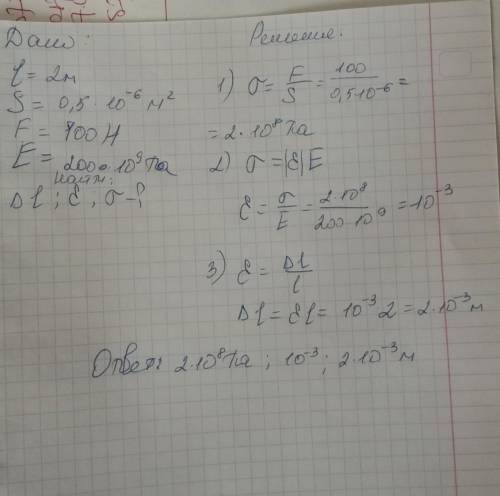 Дано:
l = 2м
S = 0,5 · 10⁻⁶ м²
F = 100 Н
E = 200 · 10⁹ Па
Найти:
Δl ; ε ; σ - ?
Решение.
1) σ = F/S = 100/0,5·10⁻⁶ =
= 2 · 10⁸ Па
2) σ = |ε| E
ε = σ/E = 2·10⁸/200·10⁹ = 10⁻³
3) ε = Δl/l
Δl = εl = 10⁻³ 2 = 2·10⁻³ м
Ответ: 2·10⁸ Па ; 10⁻³ ; 2·10⁻³ м